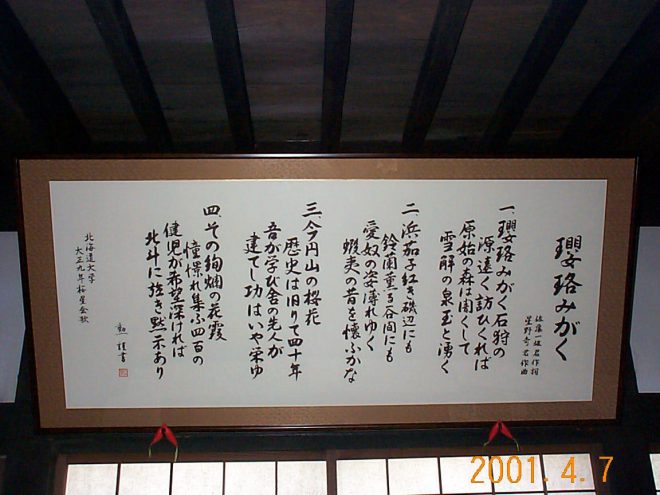 瓔珞みがく
佐藤一雄君作詞
置塩奇君作曲
一、瓔珞みがく石狩の
源遠く訪ひくれば
原始の森は闇くして
雪解の泉玉と湧く
二、浜茄子紅き磯辺にも
鈴蘭薫る谷間にも
愛奴の姿薄れゆく
蝦夷の昔を懐ふかな
三、今円山の桜花
歴史は旧りて四十年
吾が学び舎の先人が
建てし功はいや栄ゆ
四、その絢爛の花霞
憧憬れ集ふ四百の
健児が希望深ければ
北斗に強き黙示あり
北海道大学
大正九年桜星会歌
2001. 4. 7